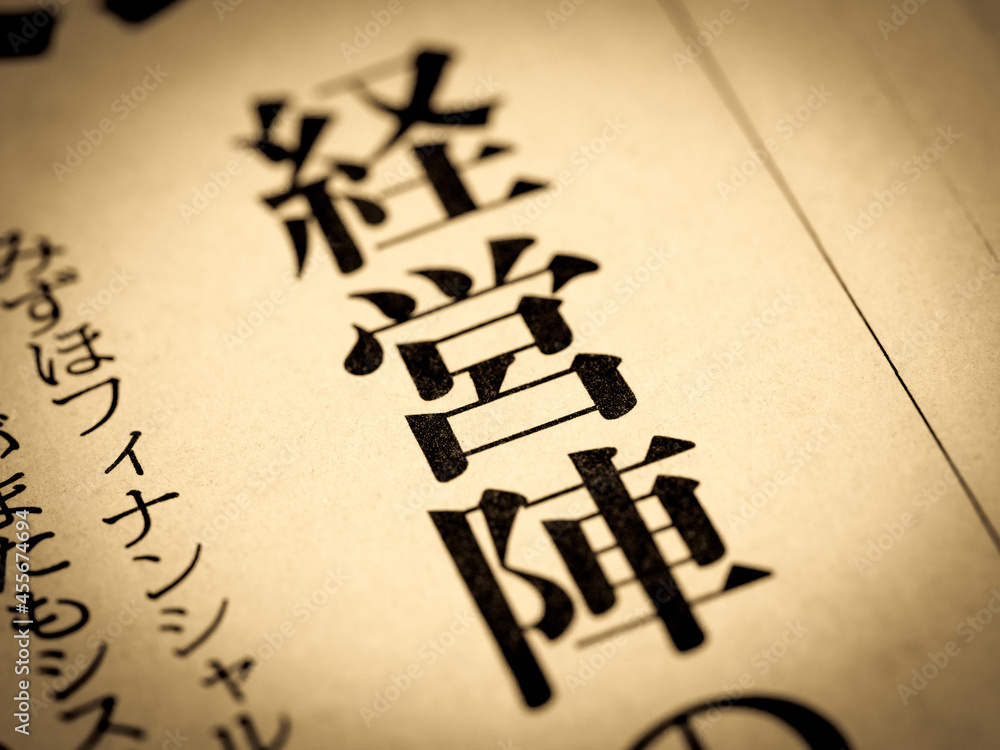 経営陣の
みずほフィナンシャル
またもシス
Adobe Stock | #455674694